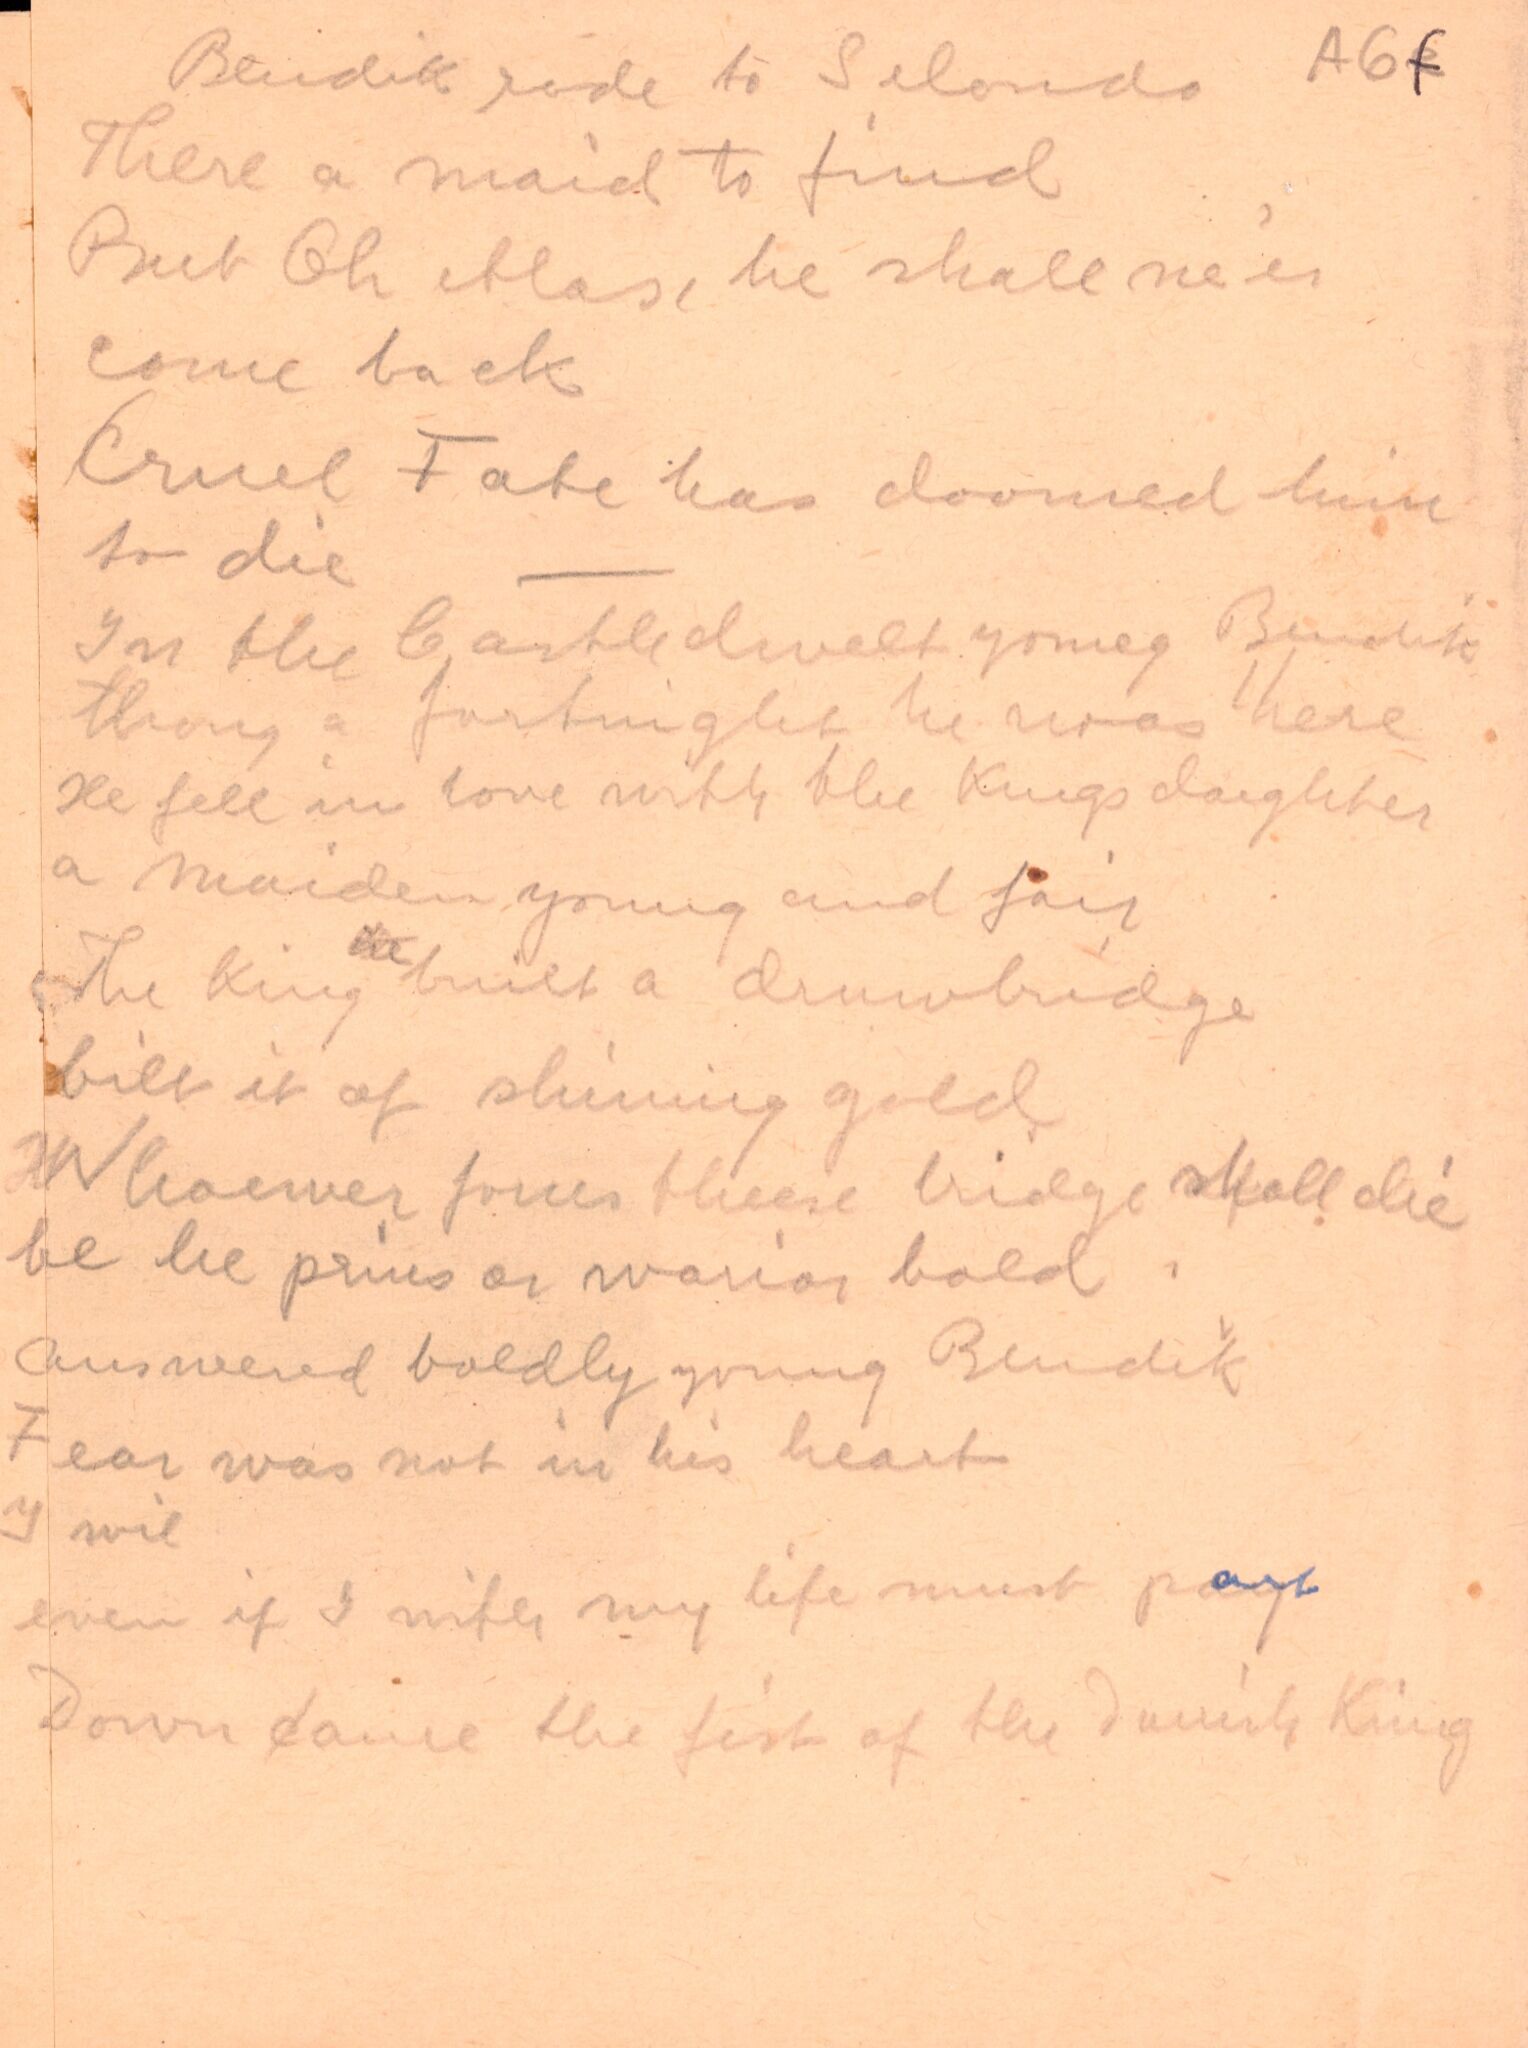 Bendik rode to Selondo A6f
There a maid to find
But Oh Alas, he shall ne'er
come back
Cruel Fate has doomed him
to die
In the Castle dwelt yomeg Bendik
a fortnight he was there
He fell in love with the Kings daughter
a maiden young and fair
The King built a druwbridge
bilt it of shining gold
Whoewer theese bridge shall die
be he prins or warior bold
answered boldly young Bendik
Fear was not in his heart
I wil
even if I with my life must part
Down came the fist of the Danish King